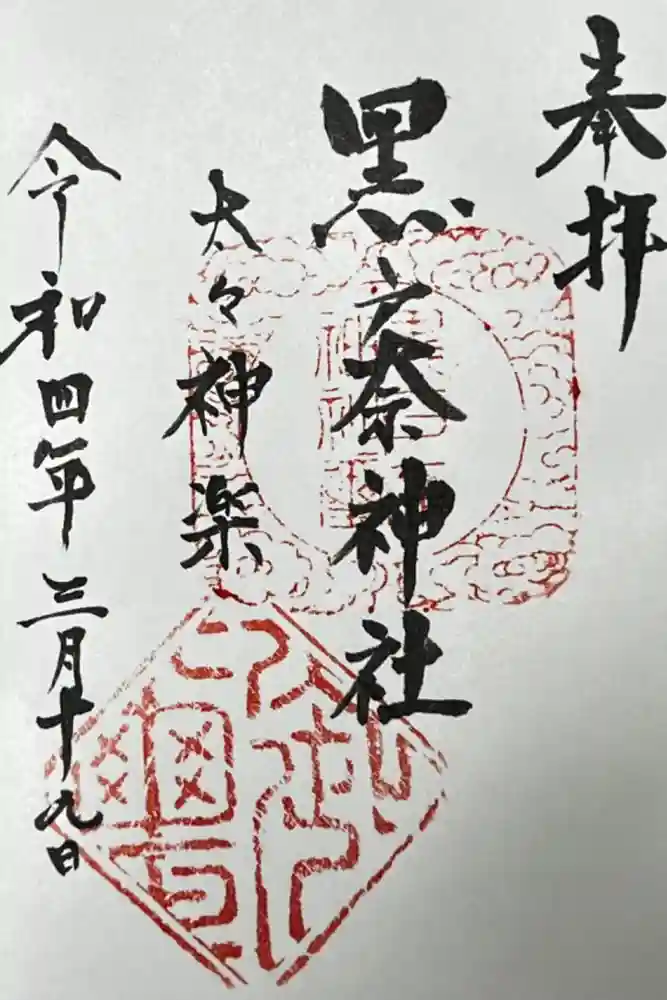 奉拝
黒戸奈神社
太々神楽
令和四年三月十九日